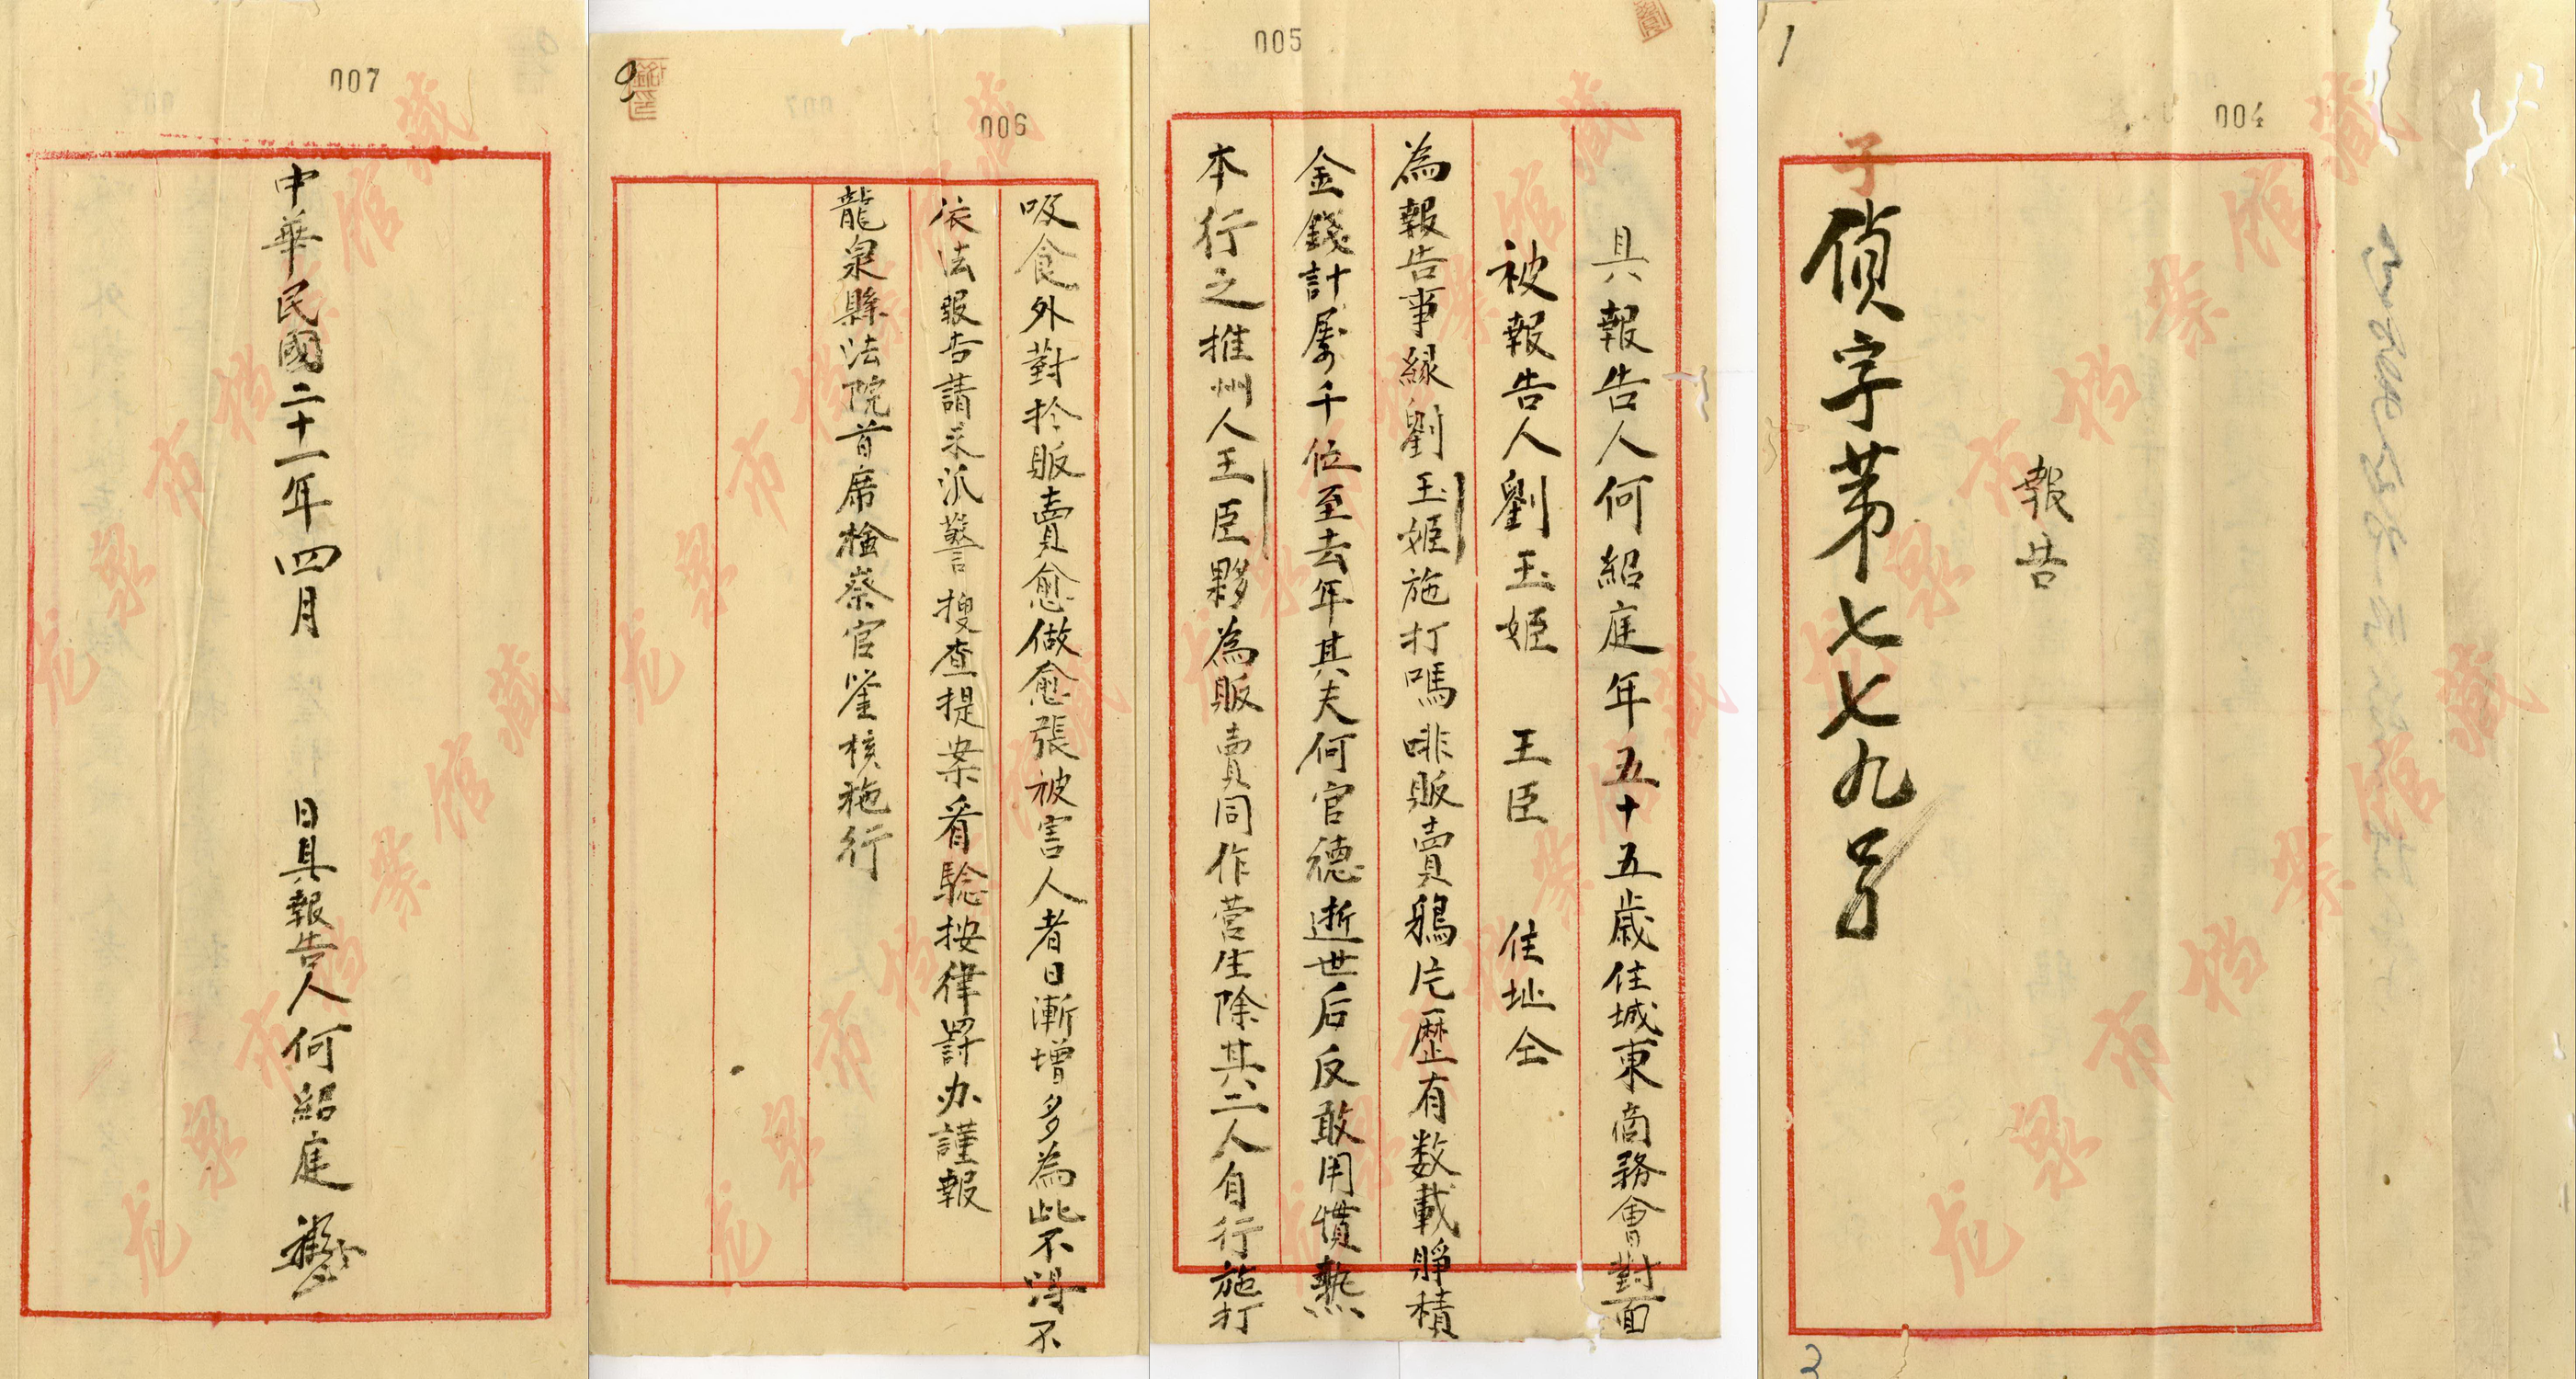 004
1
報告
子
偵字第七七九号
2
005
具報告人何紹庭年五十五歲住城東商務會對面
被報告人劉玉姬 王臣 住址仝
為報告事緣劉玉姬施打嗎啡販賣鴉片歷有数載賸積
金錢計屬千位至去年其夫何官德逝世后反敢用慣熱
本行之推州人王臣夥為販賣同作营生除其二人自行施打
006
吸食外對扵販賣愈做愈張被害人者日漸增多為此不得不
依法報告請求派警搜查提案看驗按律罸办謹報
龍泉縣法院首席檢察官鉴核施行
007
中華民國二十一年四月 日具報告人何紹庭
龙泉市档案馆藏